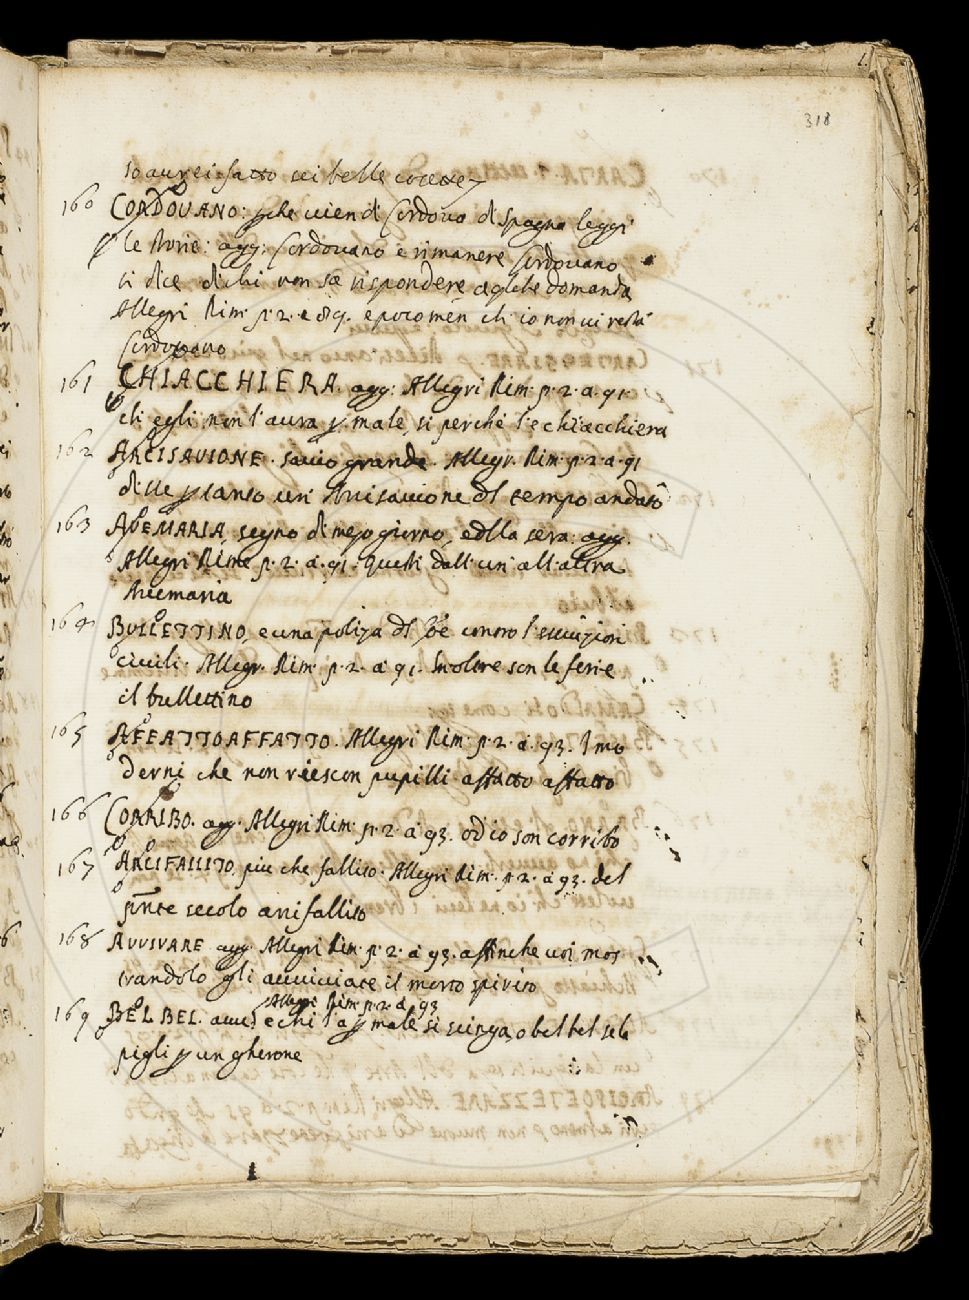 318
io aurei fatto sei belle cocette
160 CORDOVANO: p che vien di Cordova di Spagna leggi
le storie: agg: Cordovano e rimanere Cordovano
si dice di chi non sa rispondere a qlche domanda
Allegri Rim. p. 2. e 89. e poco men ch io non vi restà
Cordovano
161 CHIACCHIERA. agg: Allegri Rim. p. 2. a. 91.
ch egli non l'aura p male, si perche l'e chiacchiera
162 ARCISAVIONE. savio grande. Allegr. Rim. p. 2. a. 91
disse p tanto un Arcisavione dl tempo andato
163 AVEMARIA, segno di mezo giorno, e dlla sera: agg.
Allegri Rime p. 2. a. 91. questi dall' un' all' altra
Avemaria
164 BULLETTINO, e una poliza dl contro l'esecuzioni
civili. Allegr. Rim. p. 2. a. 91. Inoltre son le ferie
il bullettino
165 AFFATTOAFFATTO. Allegri Rim. p. 2. a. 93. I mo
derni che non riescon pupilli affatto affatto
166 CORRIBO. agg. Allegri Rim. p. 2. a. 93. od io son corribo
167 ARCIFALLITO, piu che fallito. Allegri Rim. p. 2. a 93. del
pnte secolo arcifallito
168 AVVIVARE agg. Allegri Rim. p. 2. a. 93. affinche voi mos
trandolo gli avviviate il morto spirito
Allegri Rim. p. 2. a. 93
169 BEL BEL. avver. e chi l'a p male si scinga, o bel bel se lo
pigli p un gherone